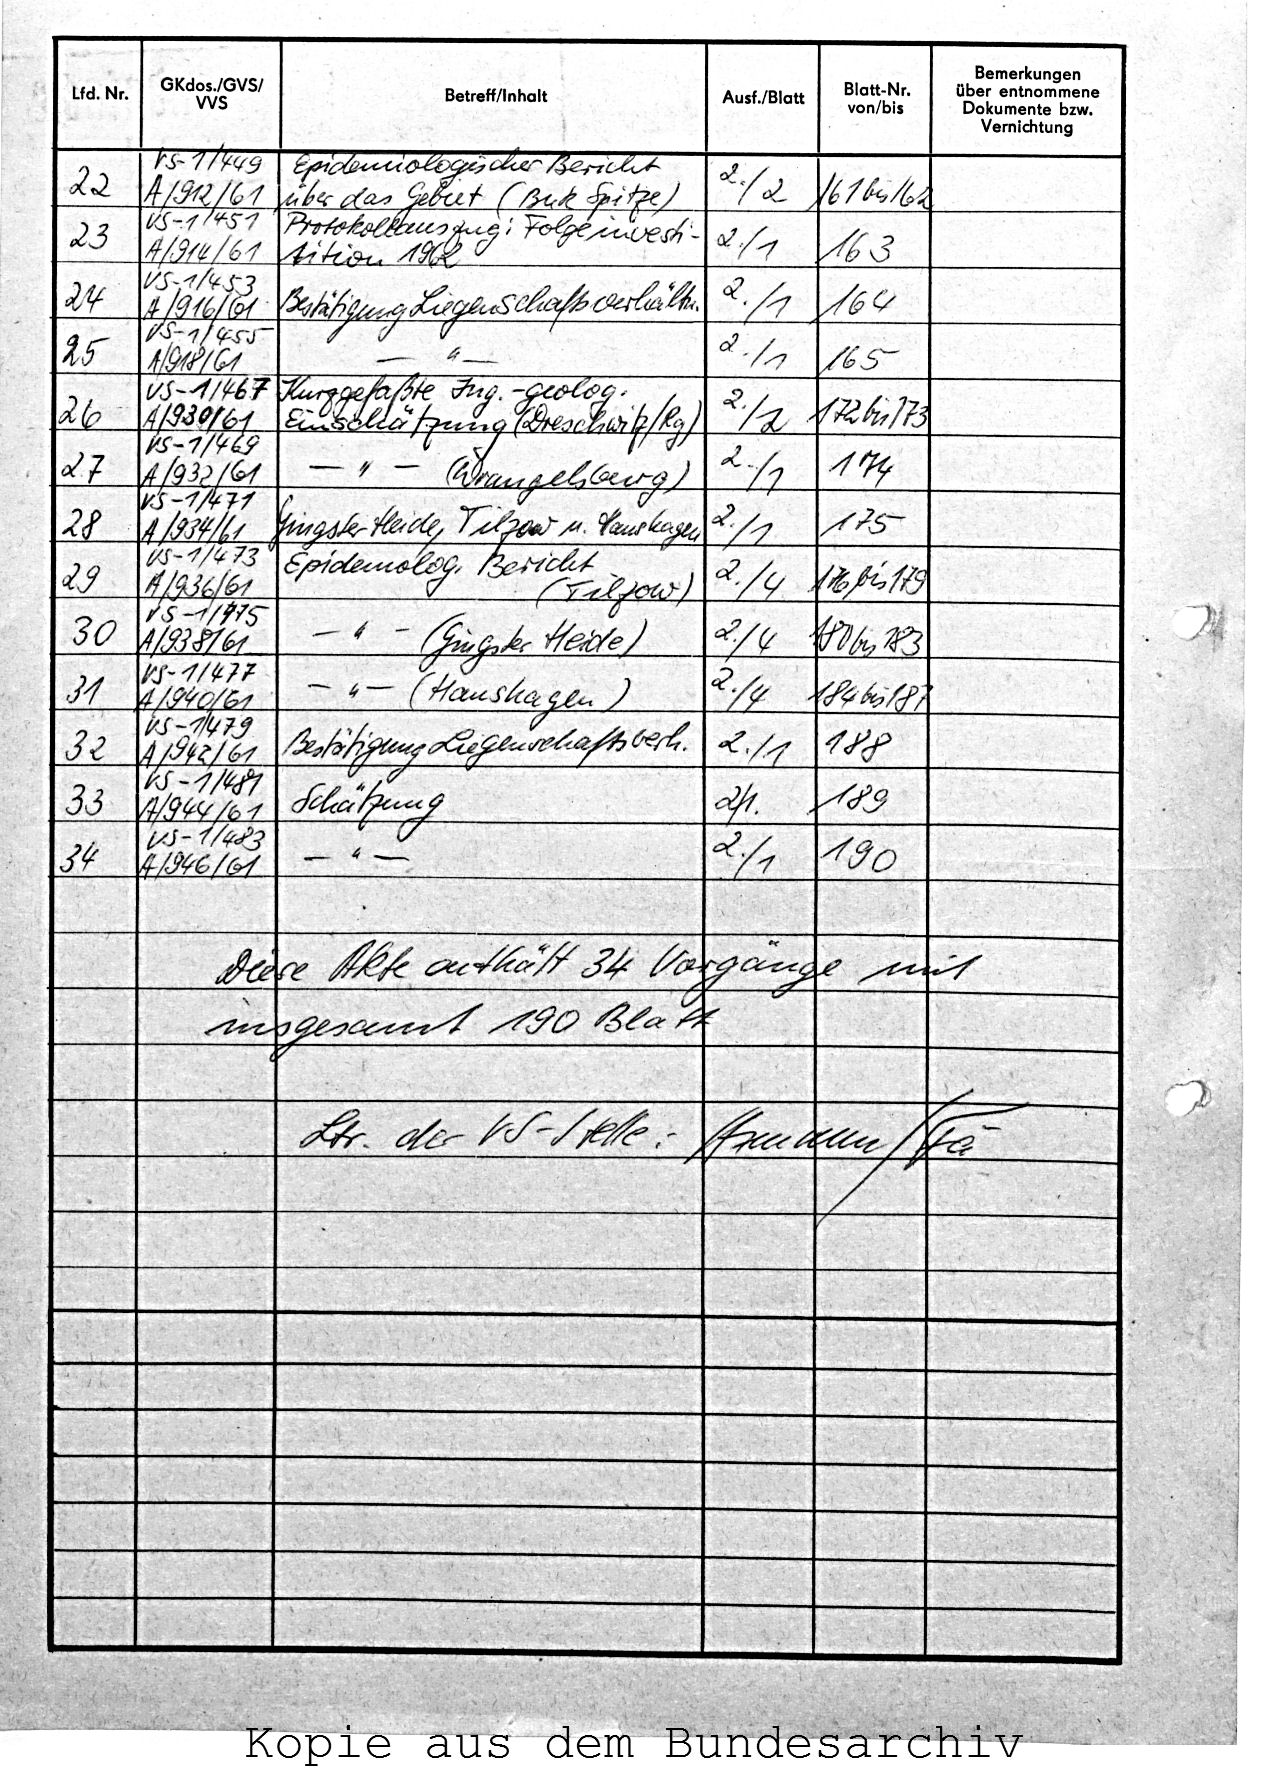 Lfd. Nr. GKdos./GVS/ VVS Betreff/Inhalt Ausf./Blatt Blatt-Nr. von/bis Bemerkungen über entnommene Dokumente bzw. Vernichtung
VS-1/449 Epidemiologischer Bericht
22 A/912/61 über das Gebiet (Buk Spitze) 2./2 161 bis 162
VS-1/451 Protokollauszug: Folgeinvesti-
23 A/914/61 tition 1962 2./1 163
VS-1/453
24 A/916/61 Bestätigung Liegenschaftsverhältn. 2./1 164
VS-1/455
25 A/918/61 — " — 2./1 165
VS-1/467 Kurzgefaßte Ing.-geolog.
26 A/930/61 Einschätzung (Dreschwitz/Rg) 2./2 172 bis 173
VS-1/469
27 A/932/61 — " — (Wrangelsburg) 2./1 174
VS-1/471
28 A/934/61 Gingster Heide, Tilzow u. Hanshagen 2./1 175
VS-1/473 Epidemolog. Bericht
29 A/936/61 (Tilzow) 2./4 176 bis 179
VS-1/475
30 A/938/61 — " — (Gingster Heide) 2./4 180 bis 183
VS-1/477
31 A/940/61 — " — (Hanshagen) 2./4 184 bis 187
VS-1/479
32 A/942/61 Bestätigung Liegenschaftsverh. 2./1 188
VS-1/481
33 A/944/61 Schätzung 2/1. 189
VS-1/483
34 A/946/61 — " — 2./1 190
Diese Akte enthält 34 Vorgänge mit
insgesamt 190 Blatt
Ltr. der VS-Stelle:
Kopie aus dem Bundesarchiv